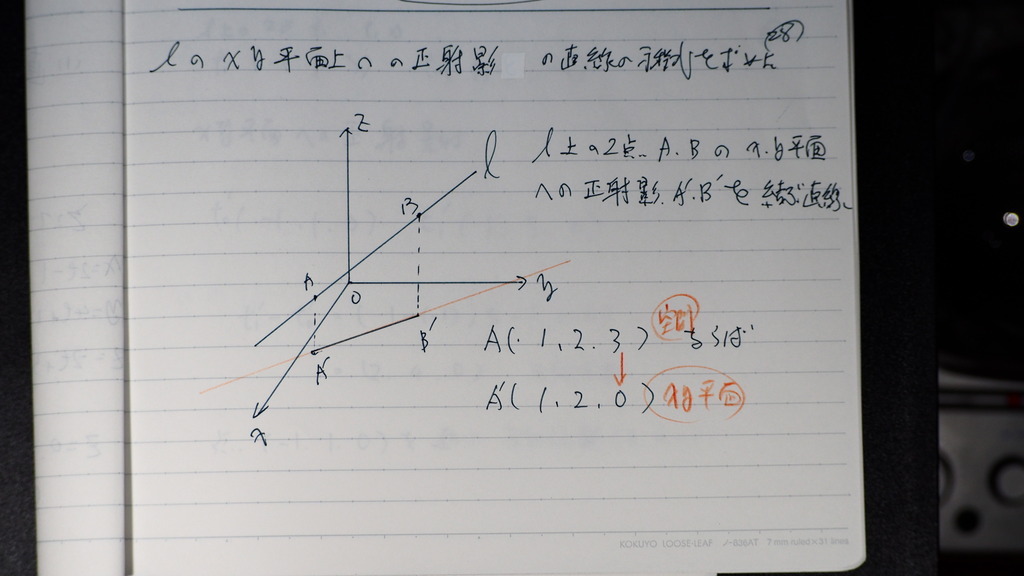 (28)
lのxy平面上への正射影 の直線の方程式を求めよ
z
l
l上の2点.A.Bのx.y平面
B
への正射影.A'.B'を結ぶ直線
A
O
y
B'
A'
A(.1.2.3) 空間 ならば
A'(1.2.0) xy平面
x
KOKUYO LOOSE-LEAF ノ-836AT 7 mm ruled×31 lines